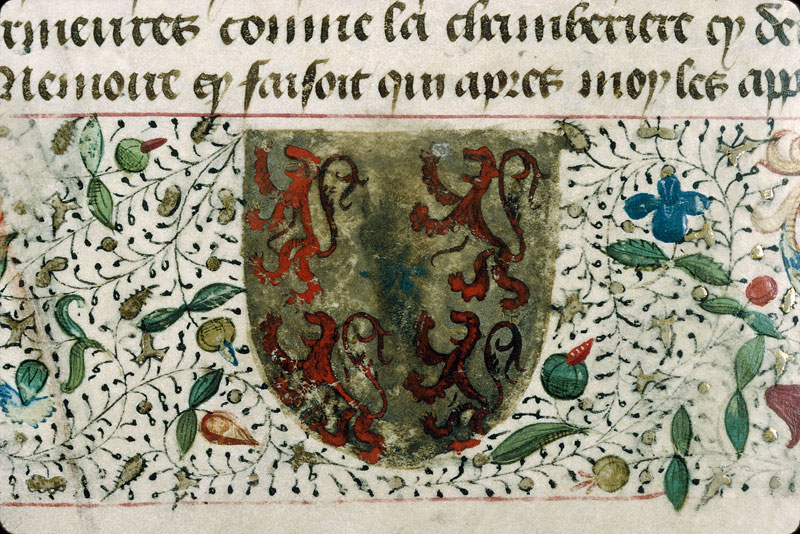 rmeures comme la chamberiere cy de
Memoire cy faisoit qui apres moy les app